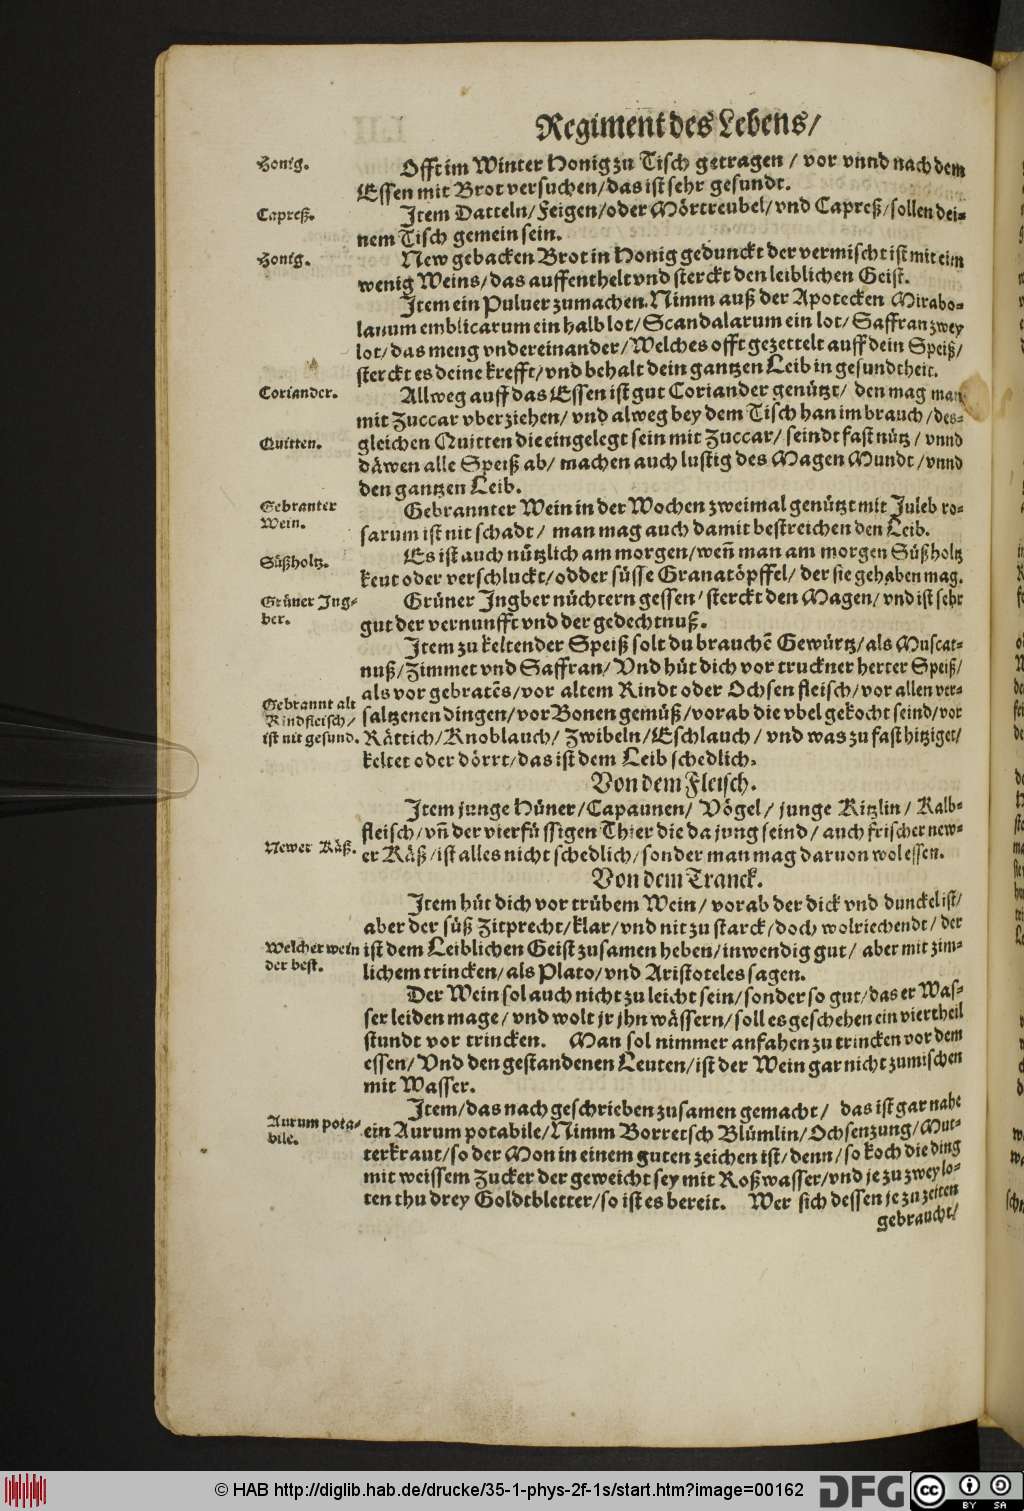 Regiment des Lebens/
Honig.
Offt im Winter Honig zu Tisch getragen / vor vnnd nach dem
Essen mit Brot versuchen/das ist sehr gesundt.
Capreß.
Item Datteln/Feigen/oder Mörtreubel/vnd Capreß/sollen dei⸗
nem Tisch gemein sein.
Honig.
New gebacken Brot in Honig gedunckt der vermischt ist mit eim
wenig Weins/das auffenthelt vnd sterckt den leiblichen Geist.
Item ein Puluer zumachen. Nimm auß der Apotecken Mirabo⸗
lanum emblicarum ein halb lot/Scandalarum ein lot/Saffran zwey
lot/das meng vndereinander/Welches offt gezettelt auff dein Speiß/
sterckt es deine krefft/vnd behalt dein gantzen Leib in gesundtheit.
Coriander.
Allweg auff das Essen ist gut Coriander genützt/ den mag man
mit Zuccar vberziehen/ vnd alweg bey dem Tisch han im brauch /des⸗
Quitten.
gleichen Quitten die eingelegt sein mit Zuccar/ seindt fast nütz / vnnd
däwen alle Speiß ab/ machen auch lustig des Magen Mundt /vnnd
den gantzen Leib.
Gebranter
Wein.
Gebrannter Wein in der Wochen zweimal genützt mit Juleb ro⸗
sarum ist nit schadt / man mag auch damit bestreichen den Leib.
Süßholtz.
Es ist auch nützlich am morgen/weñ man am morgen Süßholtz
keut oder verschluckt/odder süsse Granatöpffel/ der sie gehaben mag.
Grüner Ing⸗
ber.
Grüner Ingber nüchtern gessen/ sterckt den Magen/ vnd ist sehr
gut der vernunfft vnd der gedechtnuß.
Item zu keltender Speiß solt du brauchẽ Gewürtz/als Muscat⸗
nuß/Zimmet vnd Saffran/ Vnd hüt dich vor truckner herter Speiß/
als vor gebratẽs/vor altem Rindt oder Ochsen fleisch/vor allen ver⸗
Gebrannt alt
Rindfleisch/
ist nit gesund.
saltzenen dingen/vor Bonen gemüß/vorab die vbel gekocht seind/vor
Rättich/Knoblauch/ Zwibeln/Eschlauch/ vnd was zu fast hitziget/
keltet oder dörrt/das ist dem Leib schedlich.
Von dem Fleisch.
Item junge Hüner/Capaunen/ Vögel/ junge Kitzlin / Kalb⸗
fleisch/vñ der vierfüssigen Thier die da jung seind/ auch frischer new⸗
Newer Käß.
er Käß /ist alles nicht schedlich/sonder man mag daruon wol essen.
Von dem Tranck.
Item hüt dich vor trübem Wein/ vorab der dick vnd dunckel ist/
aber der süß Zitprecht/klar/vnd nit zu starck/doch wolriechendt/ der
Welcher wein
der best.
ist dem Leiblichen Geist zusamen heben/inwendig gut/ aber mit zim⸗
lichem trincken/als Plato/vnd Aristoteles sagen.
Der Wein sol auch nicht zu leicht sein/sonder so gut/das er Was⸗
ser leiden mage/ vnd wolt jr jhn wässern/soll es geschehen ein viertheil
stundt vor trincken. Man sol nimmer anfahen zu trincken vor dem
essen/Vnd den gestandenen Leuten/ist der Wein gar nicht zumischen
mit Wasser.
Item/das nach geschrieben zusamen gemacht/ das ist gar nahe
Aurum pota⸗
bile.
ein Aurum potabile/Nimm Borretsch Blümlin/Ochsenzung/Mut⸗
terkraut/so der Mon in einem guten zeichen ist/denn/so koch die ding
mit weissem Zucker der geweicht sey mit Roßwasser/vnd je zu zwey lo⸗
ten thu drey Goldtbletter/so ist es bereit. Wer sich dessen je zu zeiten
gebraucht/
© HAB http://diglib.hab.de/drucke/35-1-phys-2f-1s/start.htm?image=00162
DFG
cc
BY SA